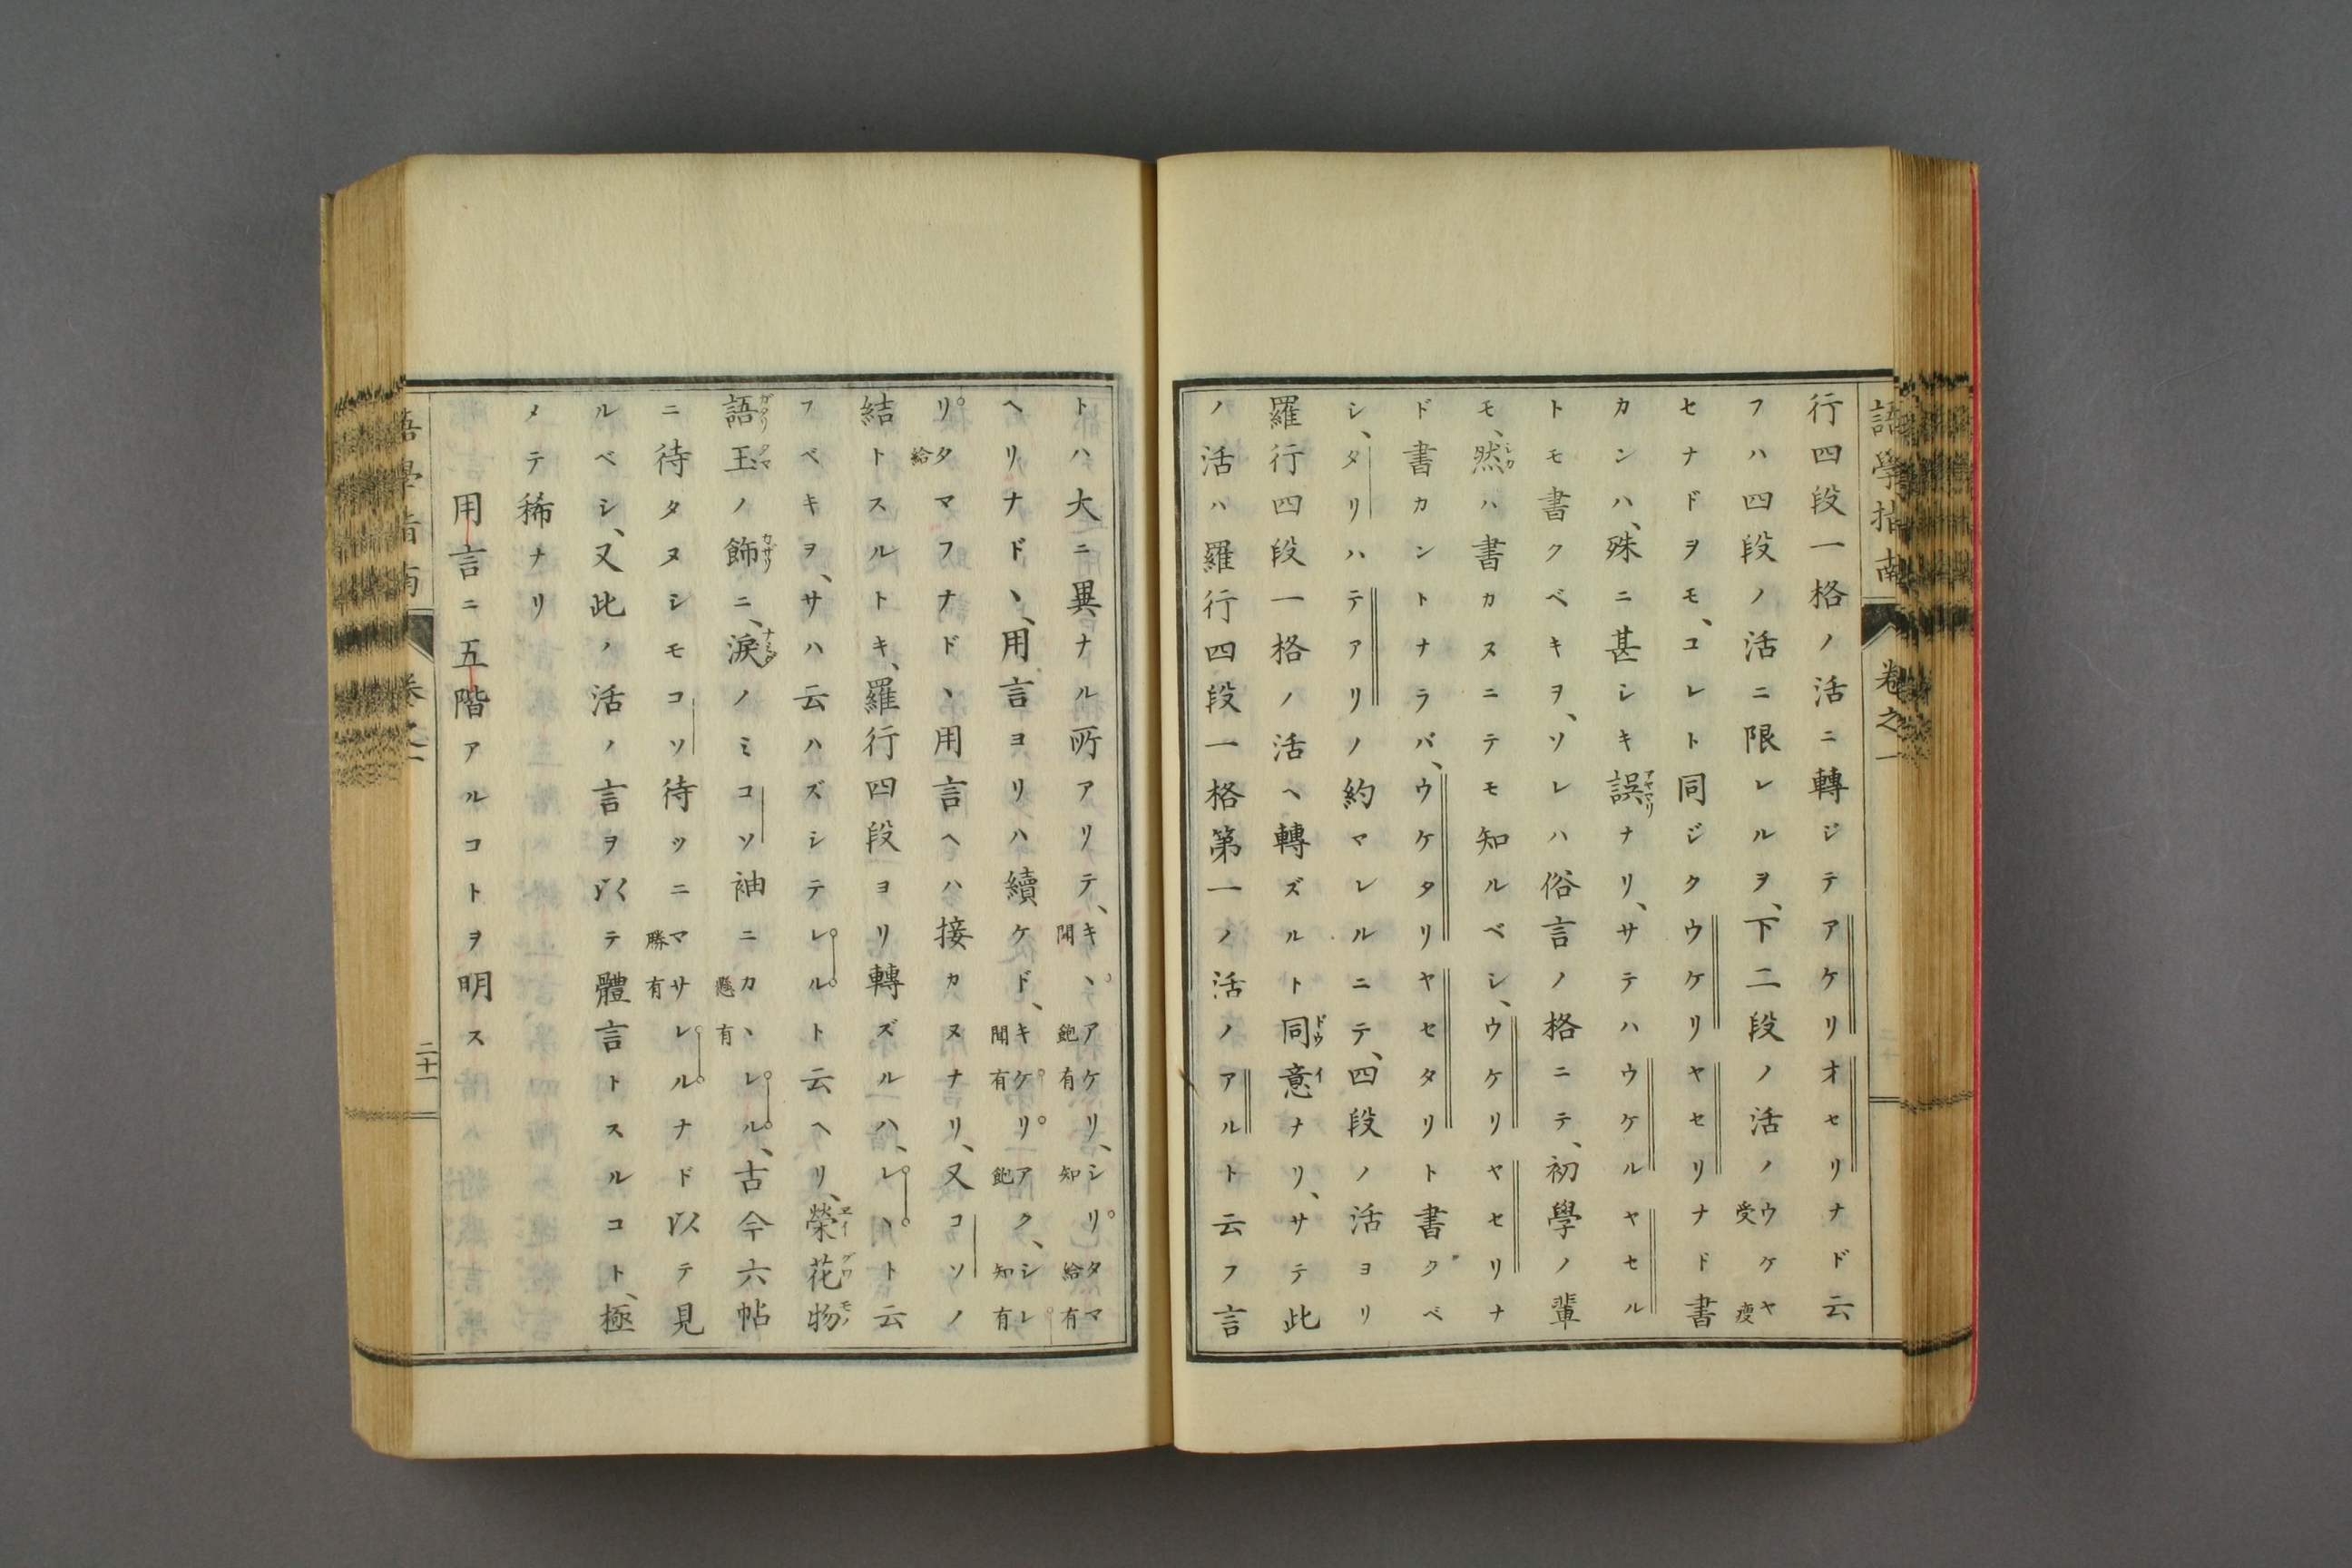 語學指南 卷之一
行四段一格ノ活ニ轉ジテアケリオセリナド云
フハ四段ノ活ニ限レルヲ、下二段ノ活ノウケ受ヤ痩
セナドヲモ、コレト同ジクウケリヤセリナド書
カンハ、殊ニ甚シキ誤アヤマリナリ、サテハウケルヤセル
トモ書クベキヲ、ソレハ俗言ノ格ニテ、初學ノ輩
モ、然シカハ書カヌニテモ知ルベシ、ウケリヤセリナ
ド書カントナラバ、ウケタリヤセタリト書クベ
シ、タリハテアリノ約マレルニテ、四段ノ活ヨリ
羅行四段一格ノ活ヘ轉ズルト同ドウ意イナリ、サテ此
ノ活ハ羅行四段一格第一ノ活ノアルト云フ言
トハ大ニ異ナル所アリテ、キヽ聞アケリ飽有、シリ知タマ給有
ヘリナド、用言ヨリハ續ケド、キケリ聞有アク飽、シレ知有
リタマフ給ナド、用言ヘハ接カヌナリ、又コソノ
結トスルトキ、羅行四段ヨリ轉ズルハ、レヽト云
フベキヲ、サハ云ハズシテレルト云ヘリ、榮エイ花グワ物モノ
語ガタリ玉タマノ飾カザリニ、淚ナミダノミコソ袖ニカヽレル懸有、古今六帖
ニ待タヌシモコソ待ツニマサレル勝有ナド以テ見
ルベシ、又此ノ活ノ言ヲ以テ體言トスルコト、極
メテ稀ナリ
用言ニ五階アルコトヲ明ス
語學指南 卷之一 二十一